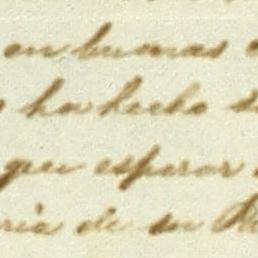 en buenas
ha hecho
que esperar
ria de su